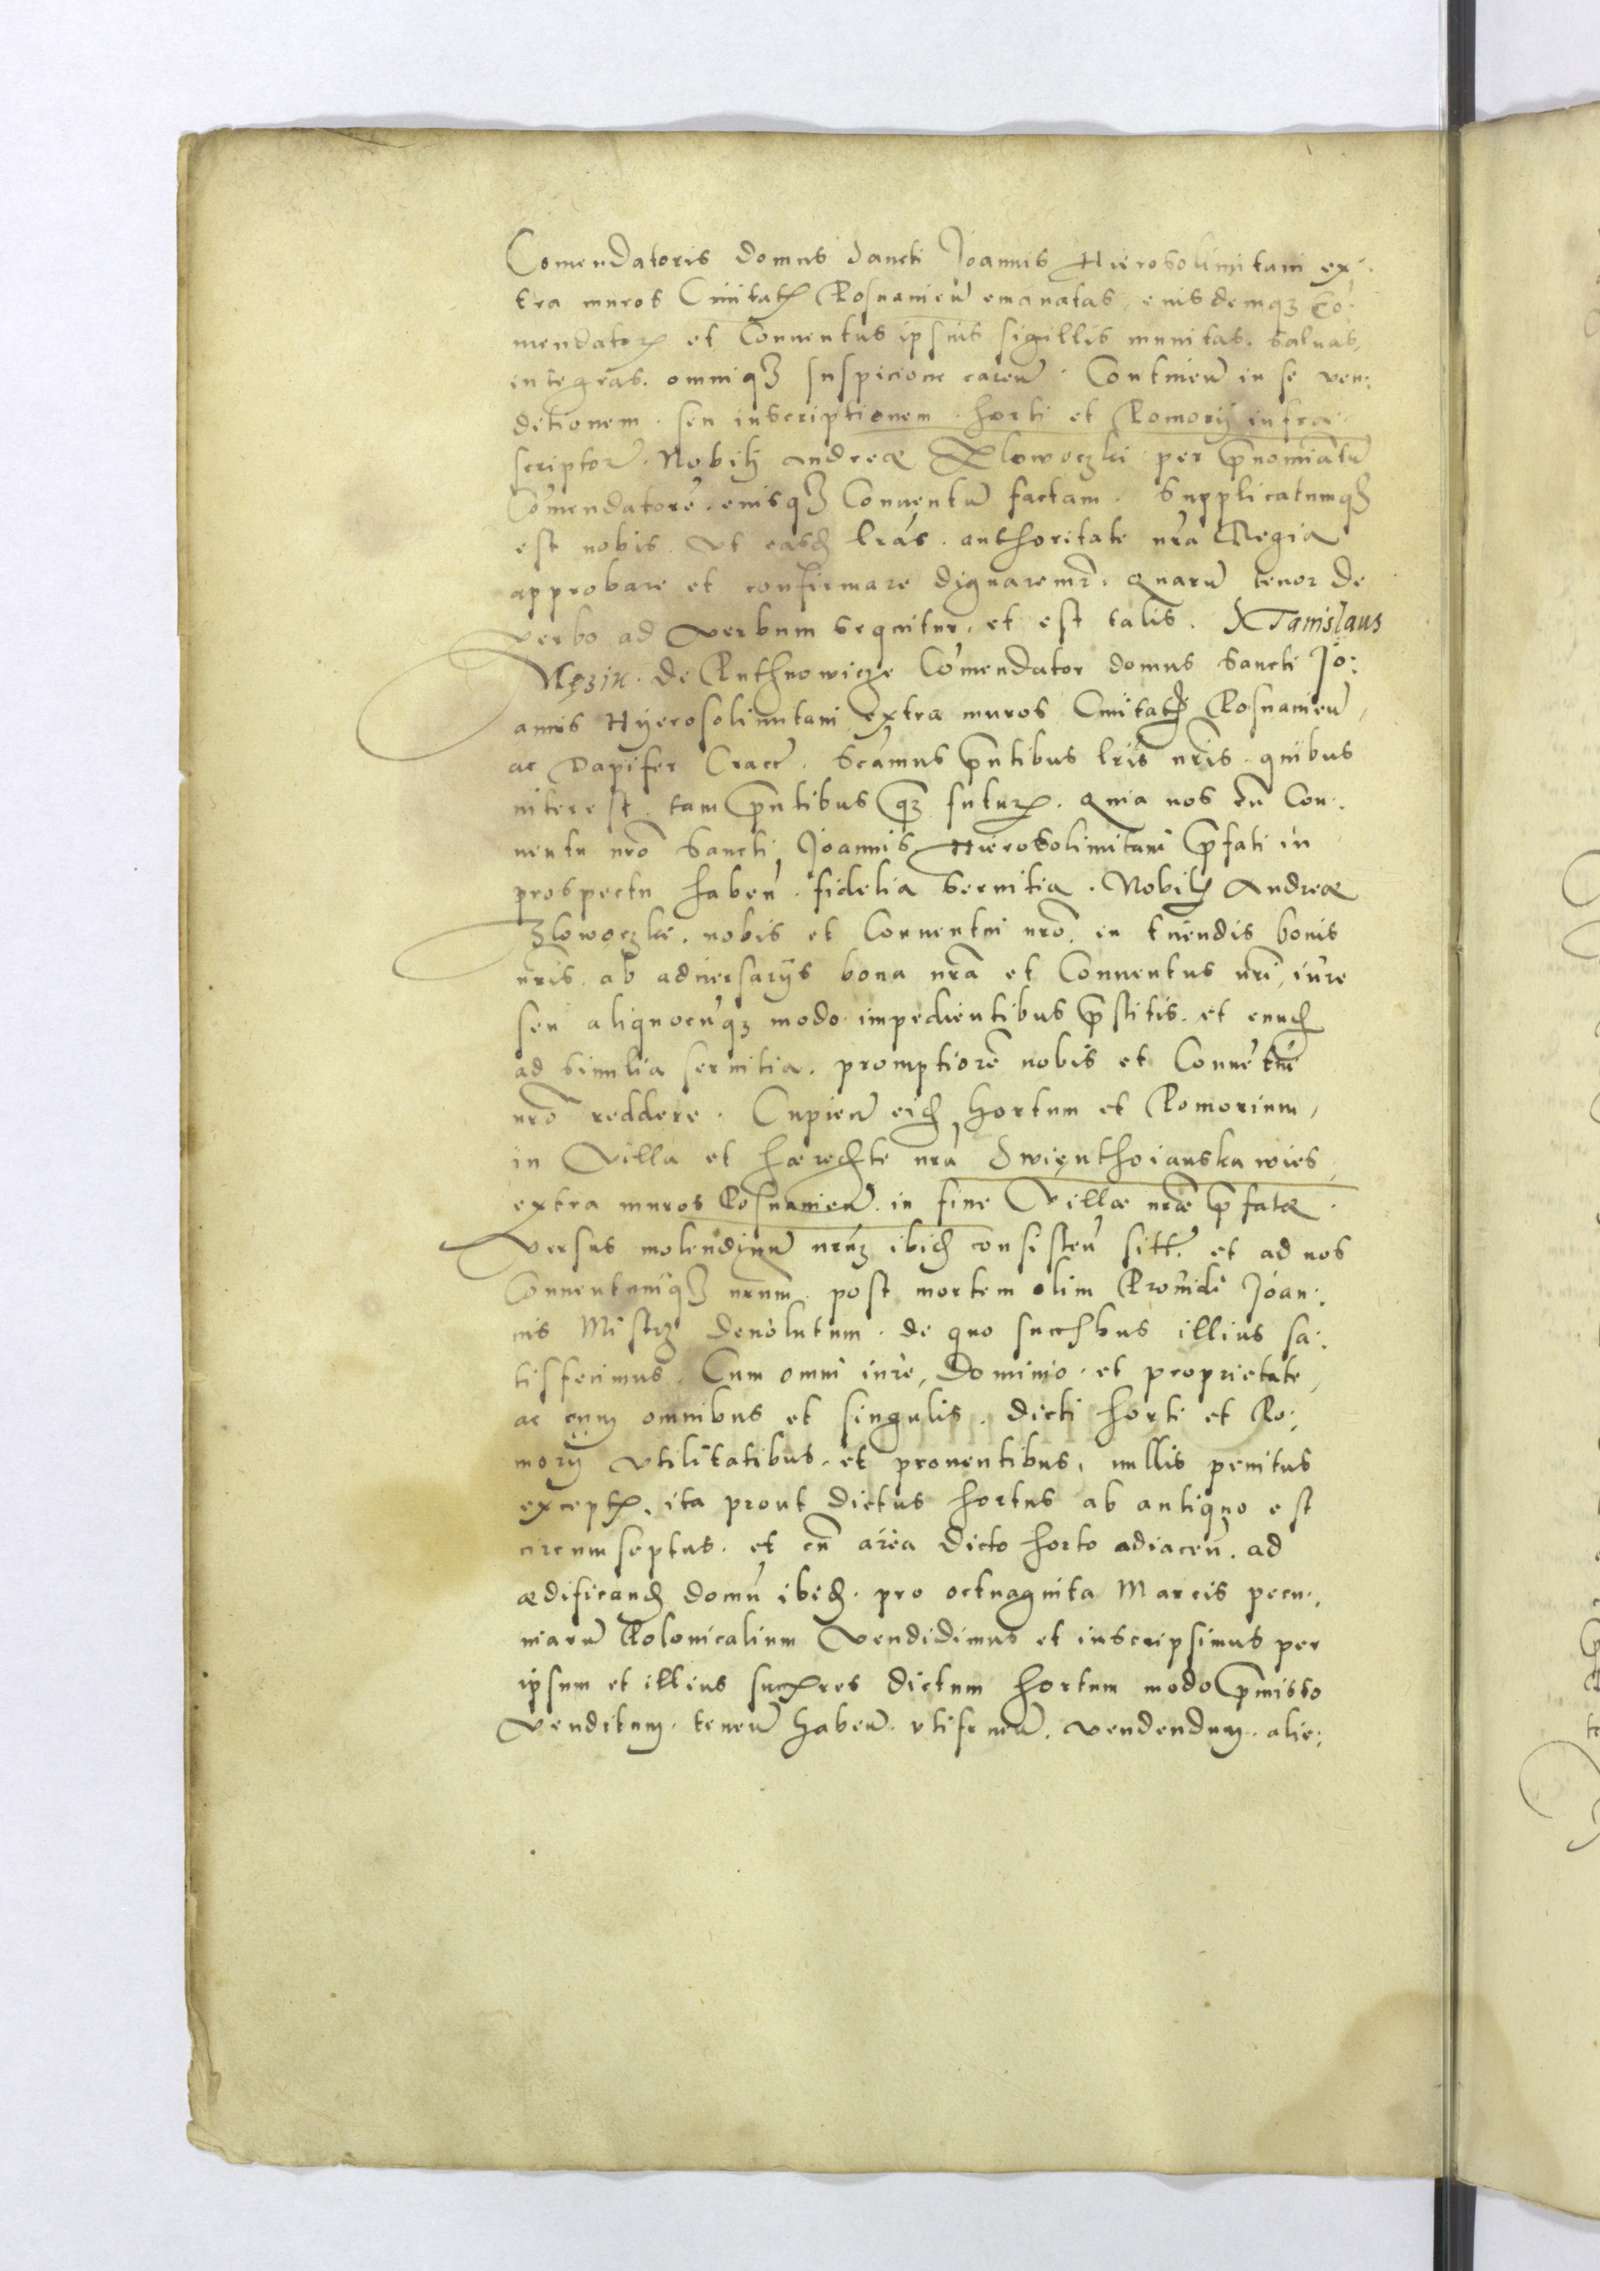 Comendatoris domus Sancti Joannis Hierosolimitani ex:
tra muros Ciuitatis Posnanien̄ emanatas, eiusdemqȝ Co:
mendatoris et Conuentus ipsius sigillis munitas. saluas,
integras. omniqȝ suspicione caren̄. Continen̄ in se ven:
ditionem. seu inscriptionem. horti et Pomorij infra
scriptor̄. Nobilis Andreæ Zlowoczki per p̄nomīatū
Com̄endatorē. eiusqȝ Conuentum̄ factam. Supplicatumqȝ
est nobis. vt easd̄ lr̄as. authoritate nr̄a Regia
approbare et confirmare dignaremr̄. Quarū tenor de
verbo ad verbum sequitur. et est talis. Stanislaus
de Ruthnowicze Com̄endator domus Sancti Jo:
annis Hyerosolimitani extra muros Ciuitatis Posnanien̄,
ac Dapifer Cracc̄. p̄ntibus lr̄is nr̄is. quibus
interest. tam p̄ntibus qȝ futuris. Quia nos cū Con:
uentu nr̄o Sancti Joannis Hierosolimitani p̄fati in
prospectu haben̄. fidelia seruitia. Nobilis Andreæ
Zlowoczki. nobis et Conuentui nr̄o. in tuendis bonis
nr̄is. ab aduersarijs bona nr̄a et Conuentus nr̄i, iure
seu aliquocūqȝ modo impedientibus p̄stitis. et eund̄
ad similia seruitia. promptiorē nobis et Conuētui
nr̄o reddere. Cupien̄ eid̄ Hortum et Pomorium,
in Villa et hæred̄te nr̄a Swięnthoianska wies,
extra muros Posnanien̄. in fine Villæ nr̄æ p̄fatæ.
versus molendinū nr̄uȝ ibid̄ consisten̄ sitt̄. et ad nos
Conuentumqȝ nr̄um. post mortem olim Prouidi Joan:
nis Mistrz deuolutum. de quo succ̄bus illius sa:
tisfecimus. Cum omni iure, dominio. et proprietate,
ac cum omnibus et singulis. dicti horti et Po:
morij vtilitatibus. et prouentibus, nullis penitus
exceptis. ita prout dictus hortus ab antiquo est
circumseptus. et cū area dicto horto adiacen̄. ad
ædificand̄ domū ibid̄. pro octuaginta Marcis pecu:
niarū Polonicalium Vendidimus et inscripsimus per
ipsum et illius succ̄res dictum hortum modo p̄misso
venditum. tenen̄ haben̄. vtifruen̄. vendendum. alie: